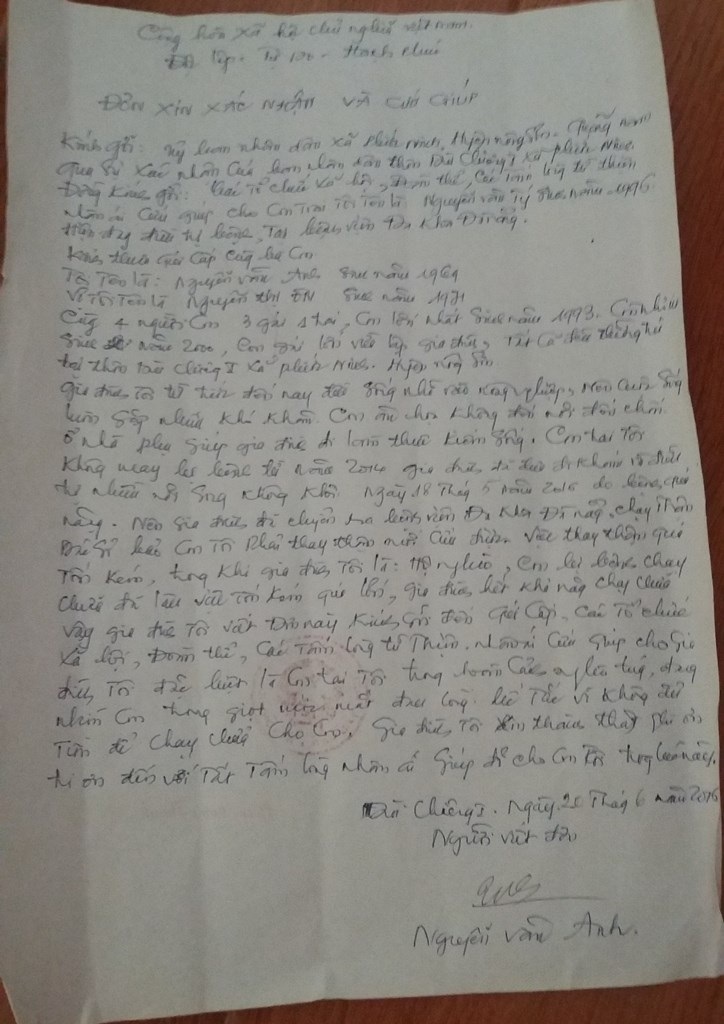 Cộng hòa xã hội chủ nghĩa việt nam.
Độc lập - Tự do - Hạnh phúc
ĐƠN XIN XÁC NHẬN VÀ CỨU GIÚP
Kính gởi: uỷ ban nhân dân xã phước ninh, Huyện nông sơn. Quảng nam
qua sự xác nhận của ban nhân dân thôn Dùi Chiêng I xã phước Ninh
Đồng Kính gởi: các tổ chức xã hội, Đoàn thể, các tấm lòng từ thiện
nhân ái cứu giúp cho Con Trai Tôi Tên là Nguyễn văn Tý sinh năm 1996
Hiện đang điều trị bệnh, Tại bệnh viện Đa khoa Đà nẵng.
Kính thưa các cấp cùng bà con
Tôi Tên là: Nguyễn văn Anh sinh năm 1969
Vợ Tôi Tên là Nguyễn thị sinh năm 1971
Cùng 4 người con 3 gái 1 trai, con lớn nhất sinh năm 1993. Con nhỏ
sinh năm 2000, con gái lớn vừa lập gia đình, Tất cả đều thường trú
tại thôn Dùi Chiêng I xã phước Ninh. Huyện nông sơn.
gia đình Tôi từ trước đến nay đời sống nhờ vào nông nghiệp, Nên cuộc sống
luôn gặp nhiều khó khăn. Con ăn học không đến nơi đến chốn
ở nhà phụ giúp gia đình đi làm thuê kiếm sống. Con trai tôi
Không may bị bệnh từ năm 2014 gia đình đã đưa đi khám và điều
trị nhiều nơi song không khỏi. Ngày 18 Tháng 5 năm 2016 do bệnh quá
nặng. Nên gia đình đã chuyển ra bệnh viện Đa Khoa Đà nẵng, chạy Thận
Bác sĩ bảo Con Tôi phải thay thận mới cứu được. việc thay thận quá
Tốn kém, trong khi gia đình Tôi là: Hộ nghèo, con bị bệnh chạy
chữa đã lâu vừa Tốn kém quá lớn, gia đình hết khả năng chạy chữa
vậy gia đình Tôi viết Đơn này Kính gởi đến các cấp, các Tổ chức
Xã hội, Đoàn thể, các Tấm lòng từ Thiện. Nhân ái cứu giúp cho gia
đình Tôi đặc biệt là Con trai Tôi trong hoàn cảnh nghèo túng, đang
nhìn con trong giọt nước mắt đau lòng bế Tắc vì không đủ
Tiền để chạy chữa cho con, gia đình Tôi xin thành thật ghi ơn
tri ơn đến với Tất Tấm lòng nhân ái giúp đỡ cho con Tôi trong lúc này.
Dùi Chiêng I. Ngày 20 Tháng 6 năm 2016
Người viết đơn
Nguyễn văn Anh.